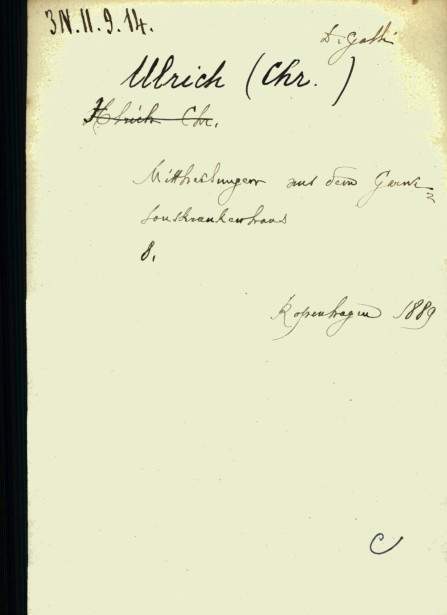 3N.II.9.14.
D. Galli
Ulrich (Chr.)
Hlrich Chr.
Mittheilungen aus dem Garni-
sonskrankenhaus
8.
Kopenhagen 1889
C